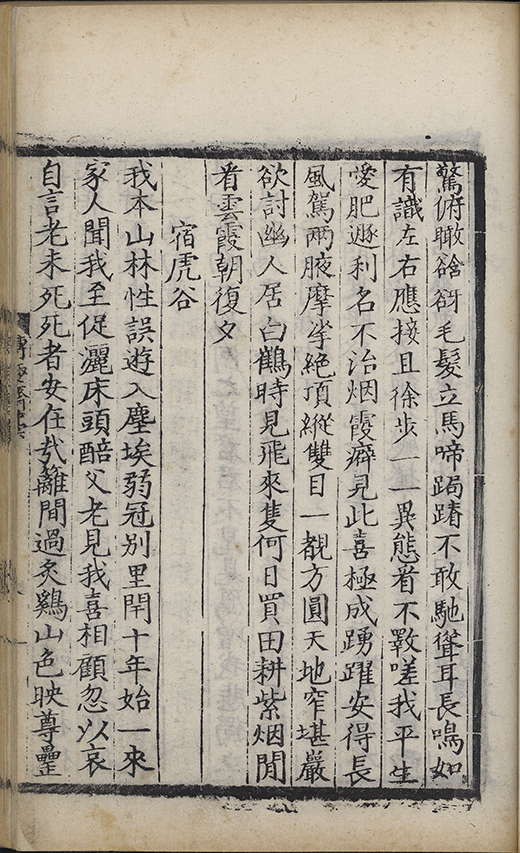 驚俯瞰谽谺毛髮立馬啼跼蹐不敢馳聳耳長鳴如
有識左右應接且徐步一一異態看不斁嗟我平生
愛肥遯利名不治烟霞癖見此喜極成踴躍安得長
風駕兩腋摩挲絶頂縱雙目一覩方圓天地窄堪巖
欲討幽人居白鶴時見飛來隻何日買田耕紫烟閒
看雲霞朝復夕
宿虎谷
我本山林性誤遊入塵埃弱冠别里閈十年始一來
家人聞我至促灑床頭醅父老見我喜相顧忽以哀
自言老未死死者安在㢤籬間過炙鷄山色映尊罍